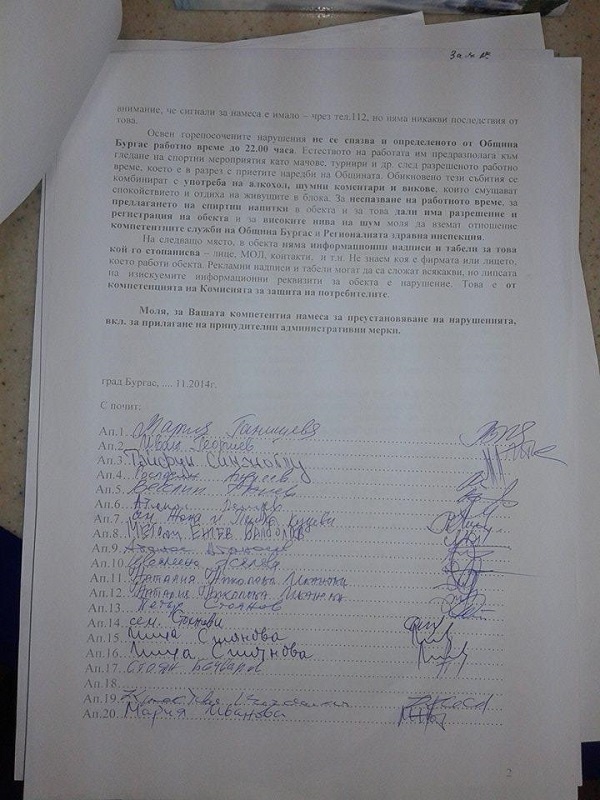 внимание, че сигнали за намеса е имало – чрез тел.112, но няма никакви последствия от
това.
Освен горепосочените нарушения не се спазва и определеното от Община
Бургас работно време до 22.00 часа. Естеството на работата им предразполага към
гледане на спортни мероприятия като мачове, турнири и др. след разрешеното работно
време, което е в разрез с приетите наредби на Общината. Обикновено тези събития се
комбинират с употреба на алкохол, шумни коментари и викове, които смущават
спокойствието и отдиха на живущите в блока. За неспазване на работното време, за
предлагането на спиртни напитки в обекта и за това дали има разрешение и
регистрация на обекта и за високите нива на шум моля да вземат отношение
компетентните служби на Община Бургас и Регионалната здравна инспекция.
На следващо място, в обекта няма информационни надписи и табели за това
кой го стопанисва – лице, МОЛ, контакти, и т.н. Не знаем коя е фирмата или лицето,
което работи обекта. Рекламни надписи и табели могат да са сложат всякакви, но липсата
на изискуемите информационни реквизити за обекта е нарушение. Това е от
компетенцията на Комисията за защита на потребителите.
Моля, за Вашата компетентна намеса за преустановяване на нарушенията,
вкл. за прилагане на принудителни административни мерки.
град Бургас, .... 11.2014г.
С почит:
Ап.1. Мария
Ап.2. Иван Георгиев
Ап.3.
Ап.4.
Ап.5.
Ап.6.
Ап.7. сем.
Ап.8.
Ап.9.
Ап.10.
Ап.11. Наталия
Ап.12. Наталия
Ап.13. Петър Стоянов
Ап.14. сем.
Ап.15. Лица Стоянова
Ап.16. Лица Стоянова
Ап.17. Стоян
Ап.18.
Ап.19.
Ап.20. Мария Иванова
2